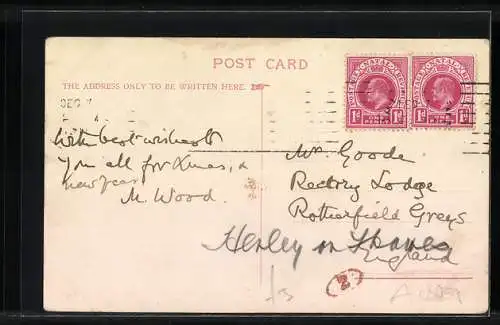 POST CARD
THE ADDRESS ONLY TO BE WRITTEN HERE.
POSTAGE NATAL REVENUE
POSTAGE NATAL REVENUE
1d ONE PENNY 1d
1d ONE PENNY 1d
DEC 7
With best wishes to
you all for Xmas, &
new year
M. Wood.
Mr. Goode
Rectory Lodge
Rotherfield Greys
Henley on Thames
England